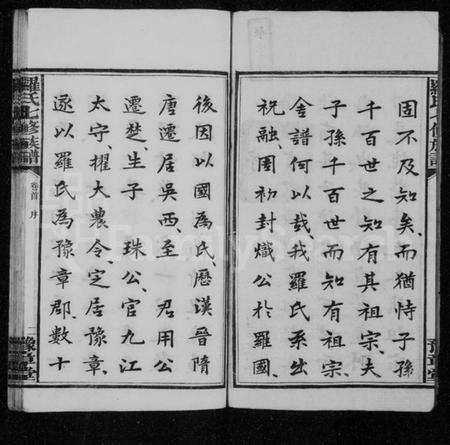 固不及知矣而猶恃子孫
千百世之知有其祖宗夫
子孫千百世而知有祖宗
舍譜何以哉我羅氏系出
祝融国初封熾公於羅國
後因以國為氏歷漢晉隋
唐遷居吳西至 君用公
遷楚生子 珠公官九江
太守擢大農令定居豫章
遂以羅氏為豫章郡數十
羅氏七修族譜
卷首 序
二
豫章堂